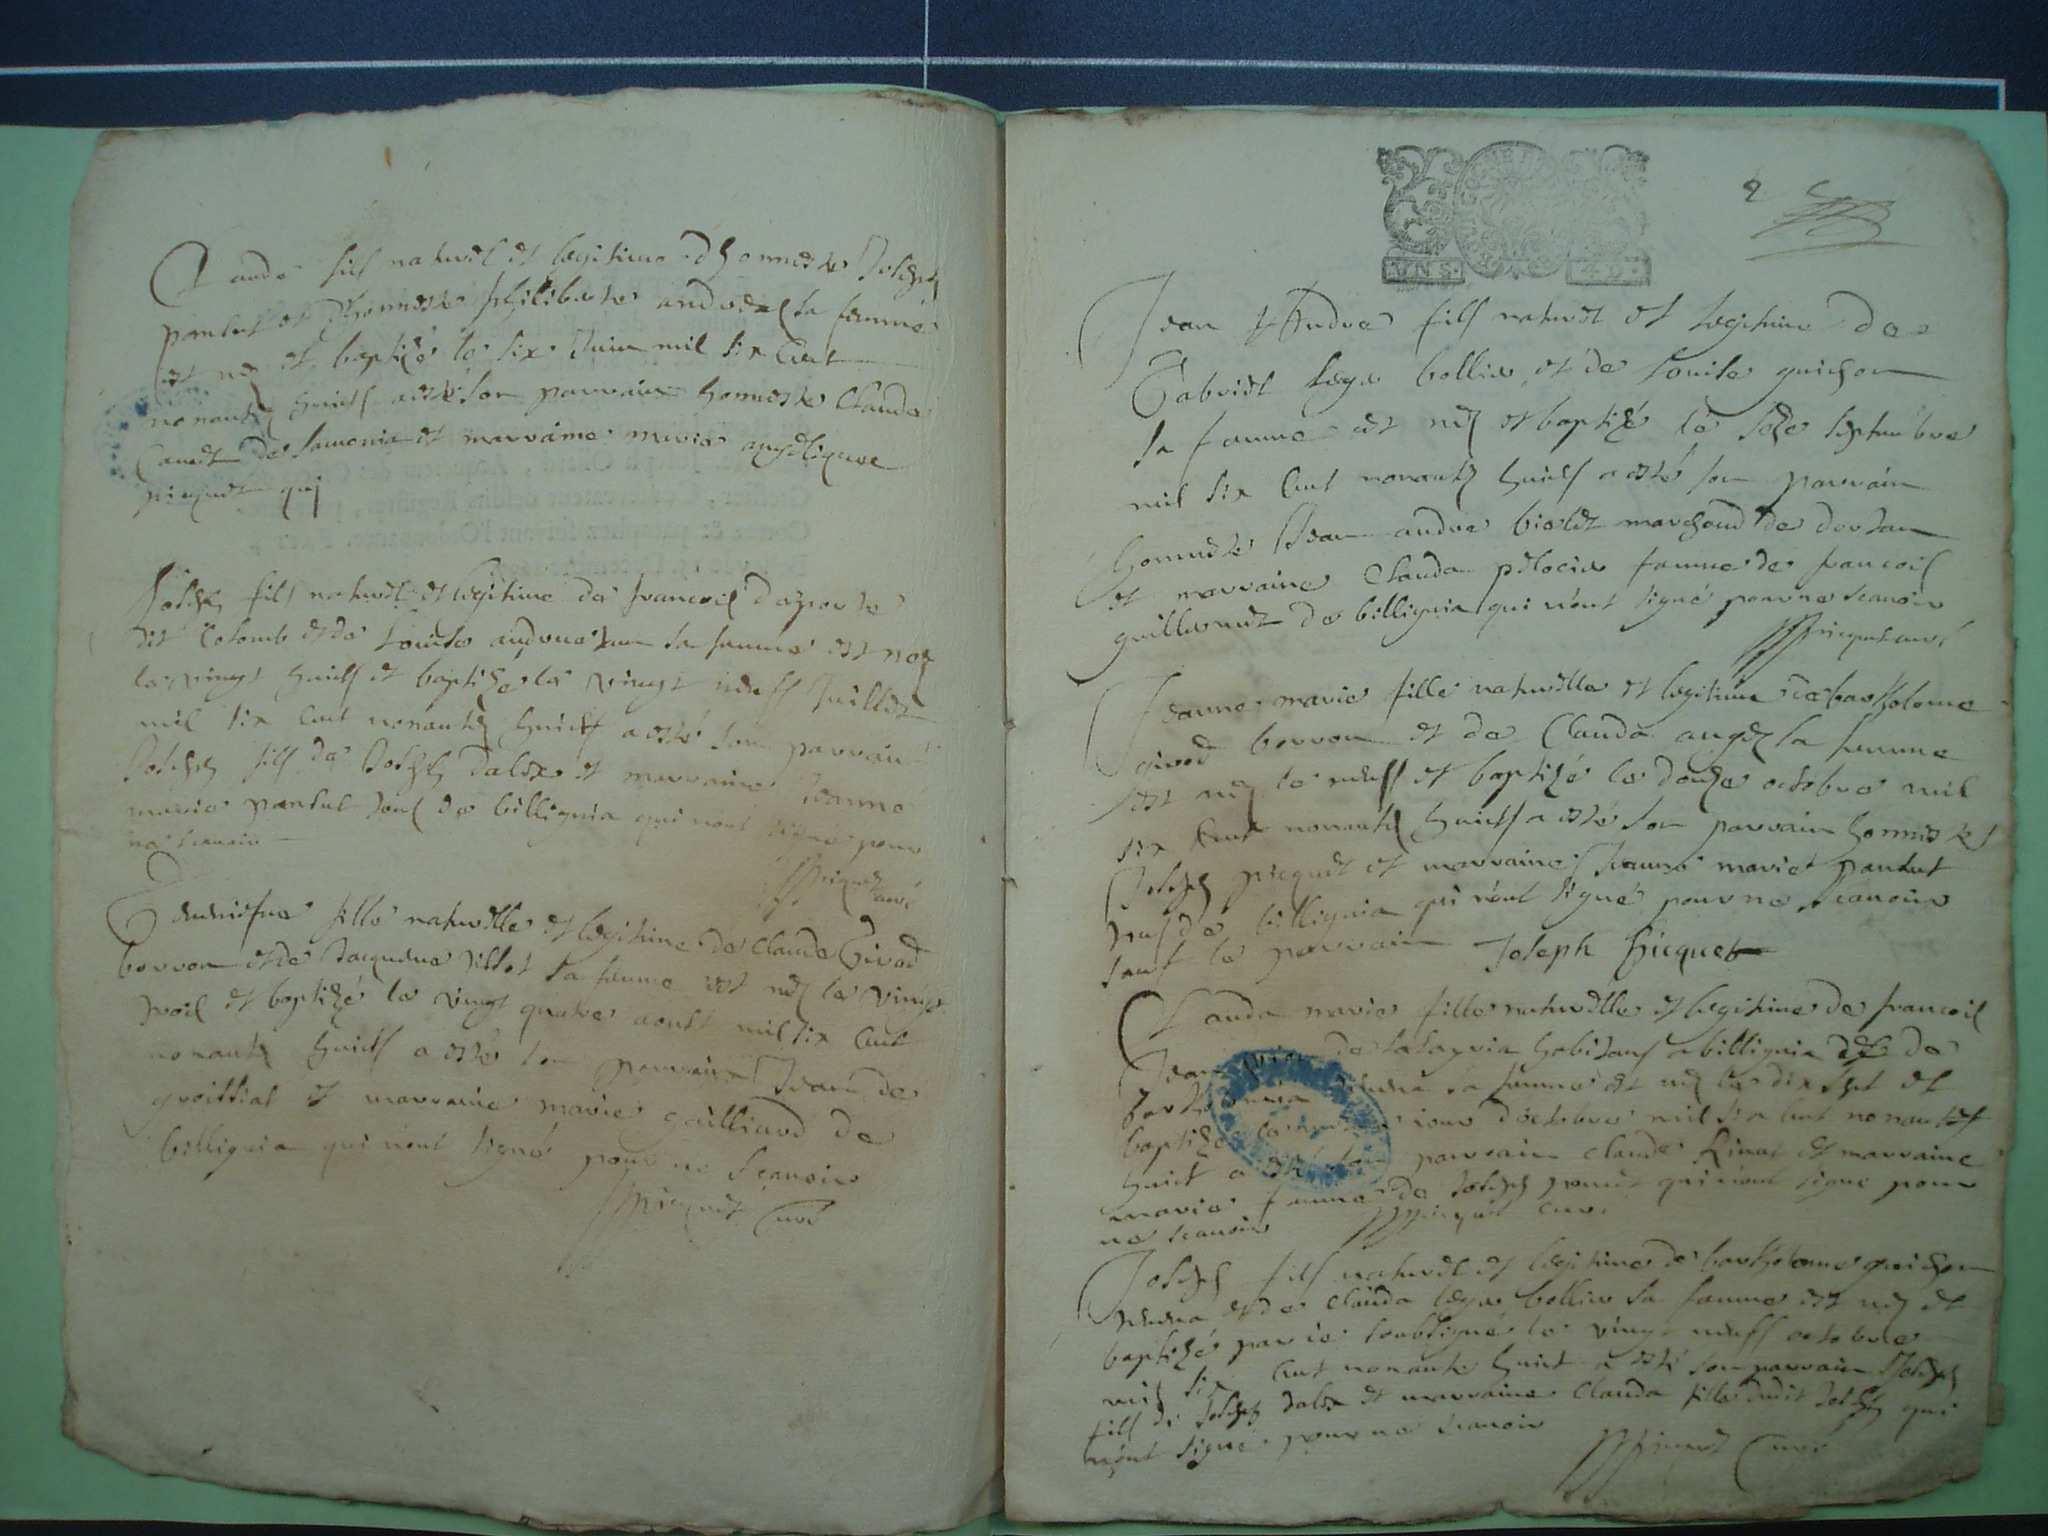 Claude fils naturel et legitime d'honneste Joseph
pantut et d'honneste philiberte sa femme
est né et baptizé le six Juin mil six cent
nonante huict a esté son parrain honneste Claude
de et marraine marie angelique
picquet qui
Joseph fils naturel et legitime de francois daporte
dit Colomb et de Louise sa femme est né
le vingt huict et baptizé le vingt neuff Juillet
mil six cent nonante huict a esté son parrain
Joseph fils de Joseph dalex et marraine Jeanne
marie pantut tous de billignia qui n'ont signé pour
ne scavoir
Picquet curé
fille naturelle et legitime de Claude Girod
borron et de Jacquema sa femme est née le vingt
trois et baptizé le vingt quatre aoust mil six cent
nonante huict a esté son parrain Jean de
groissiat et marraine marie gailliard de
billignia qui n'ont signé pour ne scavoir
Picquet Curé
VNS. 4D.
2
Jean Andre fils naturel et legitime de
Gabriel bollie et de Louise guichon
sa femme est né et baptizé le seze septembre
mil six cent nonante huict a esté son parrain
honneste Jean andre biolet marchand de dortan
et marraine Clauda femme de francois
guillermet de billignia qui n'ont signé pour ne scavoir
Picquet curé
Jeanne marie fille naturelle et legitime de bartholome
girod borron et de Clauda sa femme
est née le neuff et baptizé le douze octobre mil
six cent nonante huict a esté son parrain honneste
Joseph picquet et marraine Jeanne marie pantut
tous de billignia qui n'ont signé pour ne scavoir
sauf le parrain Joseph Picquet
Clauda marie fille naturelle et legitime de francois
Jean de habitant a billignia et de
sa femme est née le dix sept et
baptizé le jour d'octobre mil six cent nonante
huict a esté son parrain claude et marraine
marie femme de Joseph qui n'ont signé pour
ne scavoir Picquet curé
Joseph fils naturel et legitime de bartholome guichon
et de Clauda bollie sa femme est né et
baptizé par je soubsigné le vingt neuff octobre
mil six cent nonante huict a esté son parrain Joseph
fils de Joseph dalex et marraine Clauda fille dudit Joseph qui
n'ont signé pour ne scavoir
Picquet Curé